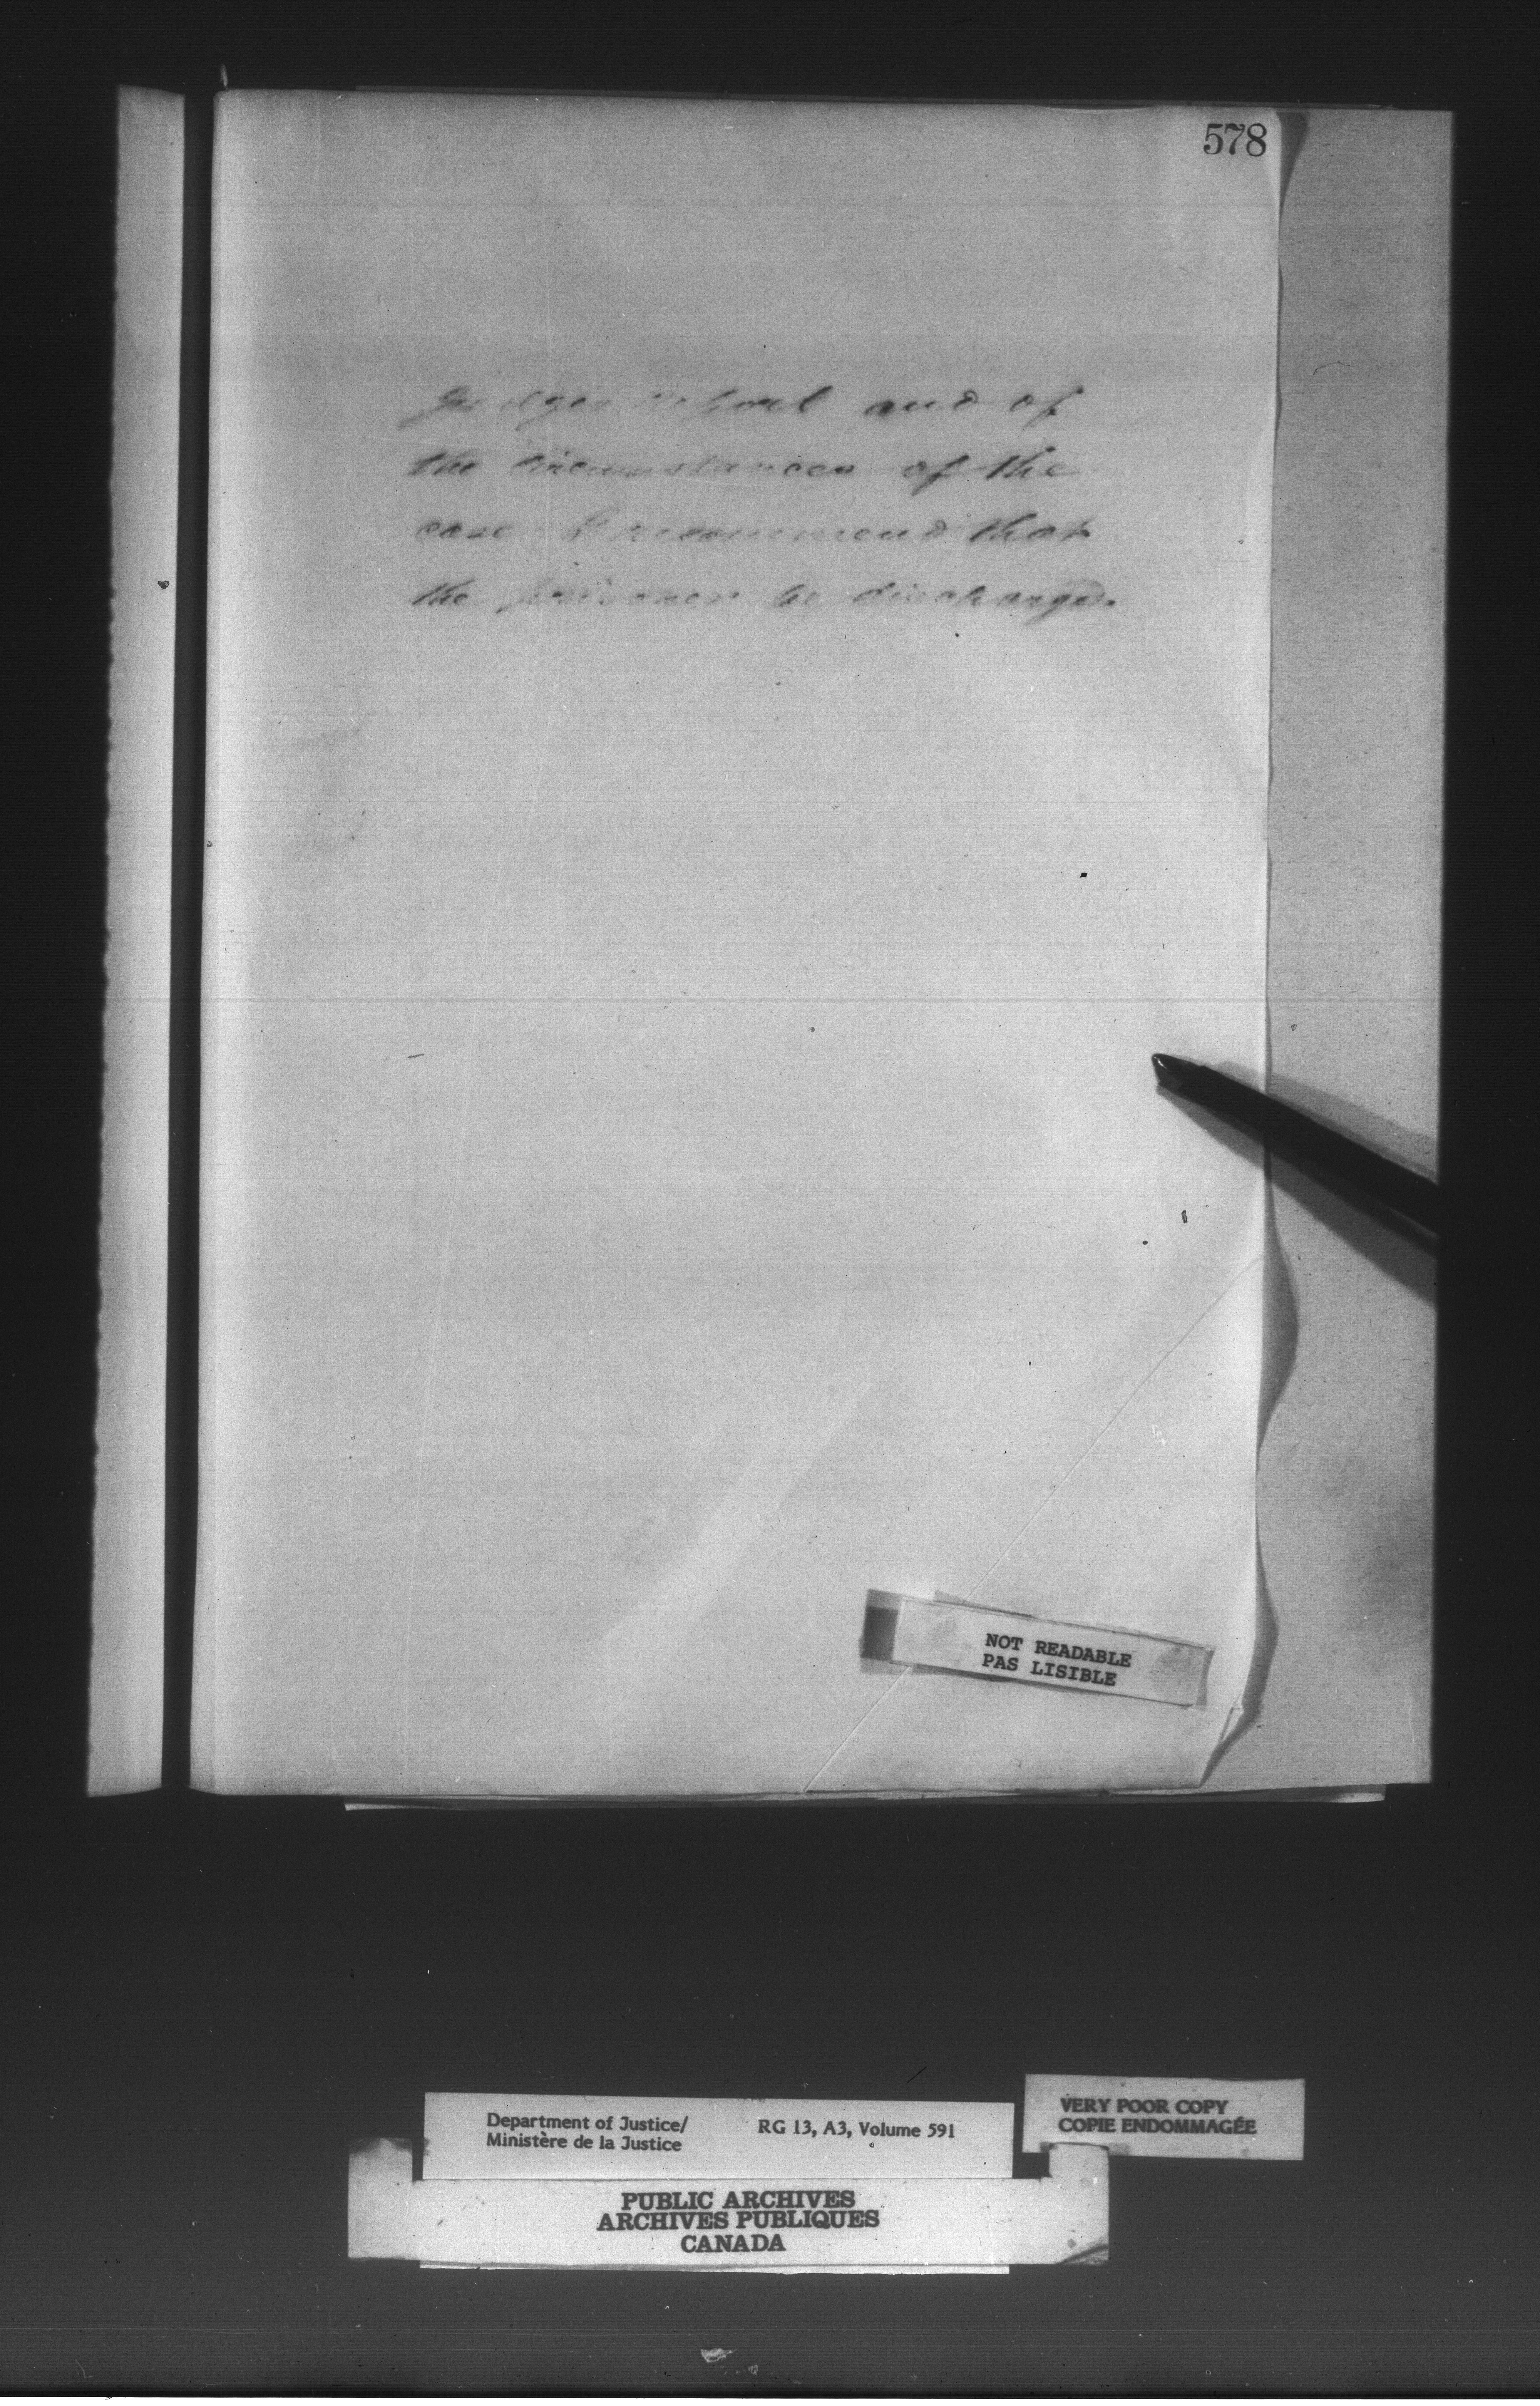 578
Judges report and of
the circumstances of the
case I recommend that
the prisoner be discharged.
NOT READABLE
PAS LISIBLE
Department of Justice/
Ministère de la Justice
RG 13, A3, Volume 591
VERY POOR COPY
COPIE ENDOMMAGÉE
PUBLIC ARCHIVES
ARCHIVES PUBLIQUES
CANADA